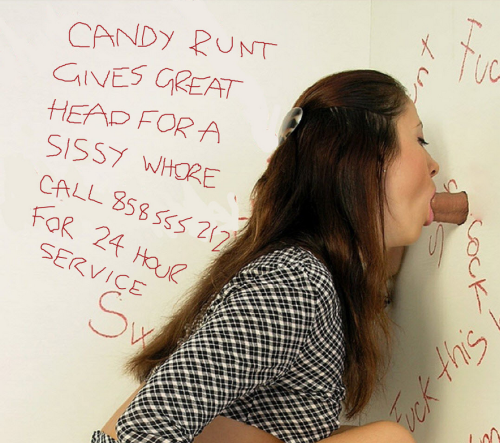 CANDY RUNT
GIVES GREAT
HEAD FOR A
SISSY WHORE
CALL 858 555 212
FOR 24 HOUR
SERVICE
Fuc
cock
Fuck this